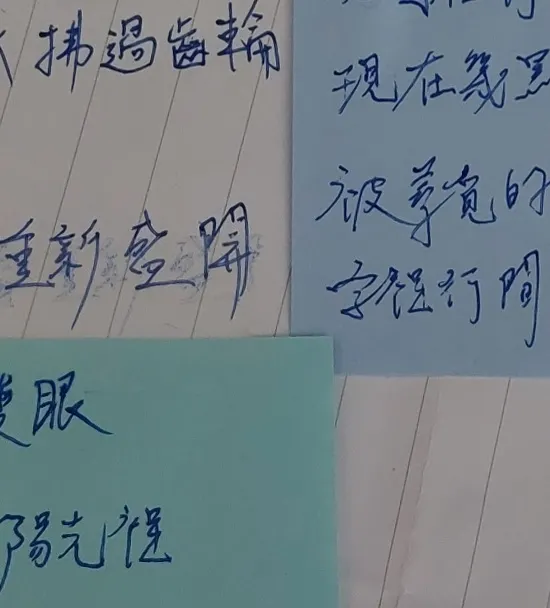 拂過齒輪
重新盛開
現在幾點
被尋覓的
字裡行間
雙眼
陽光裡